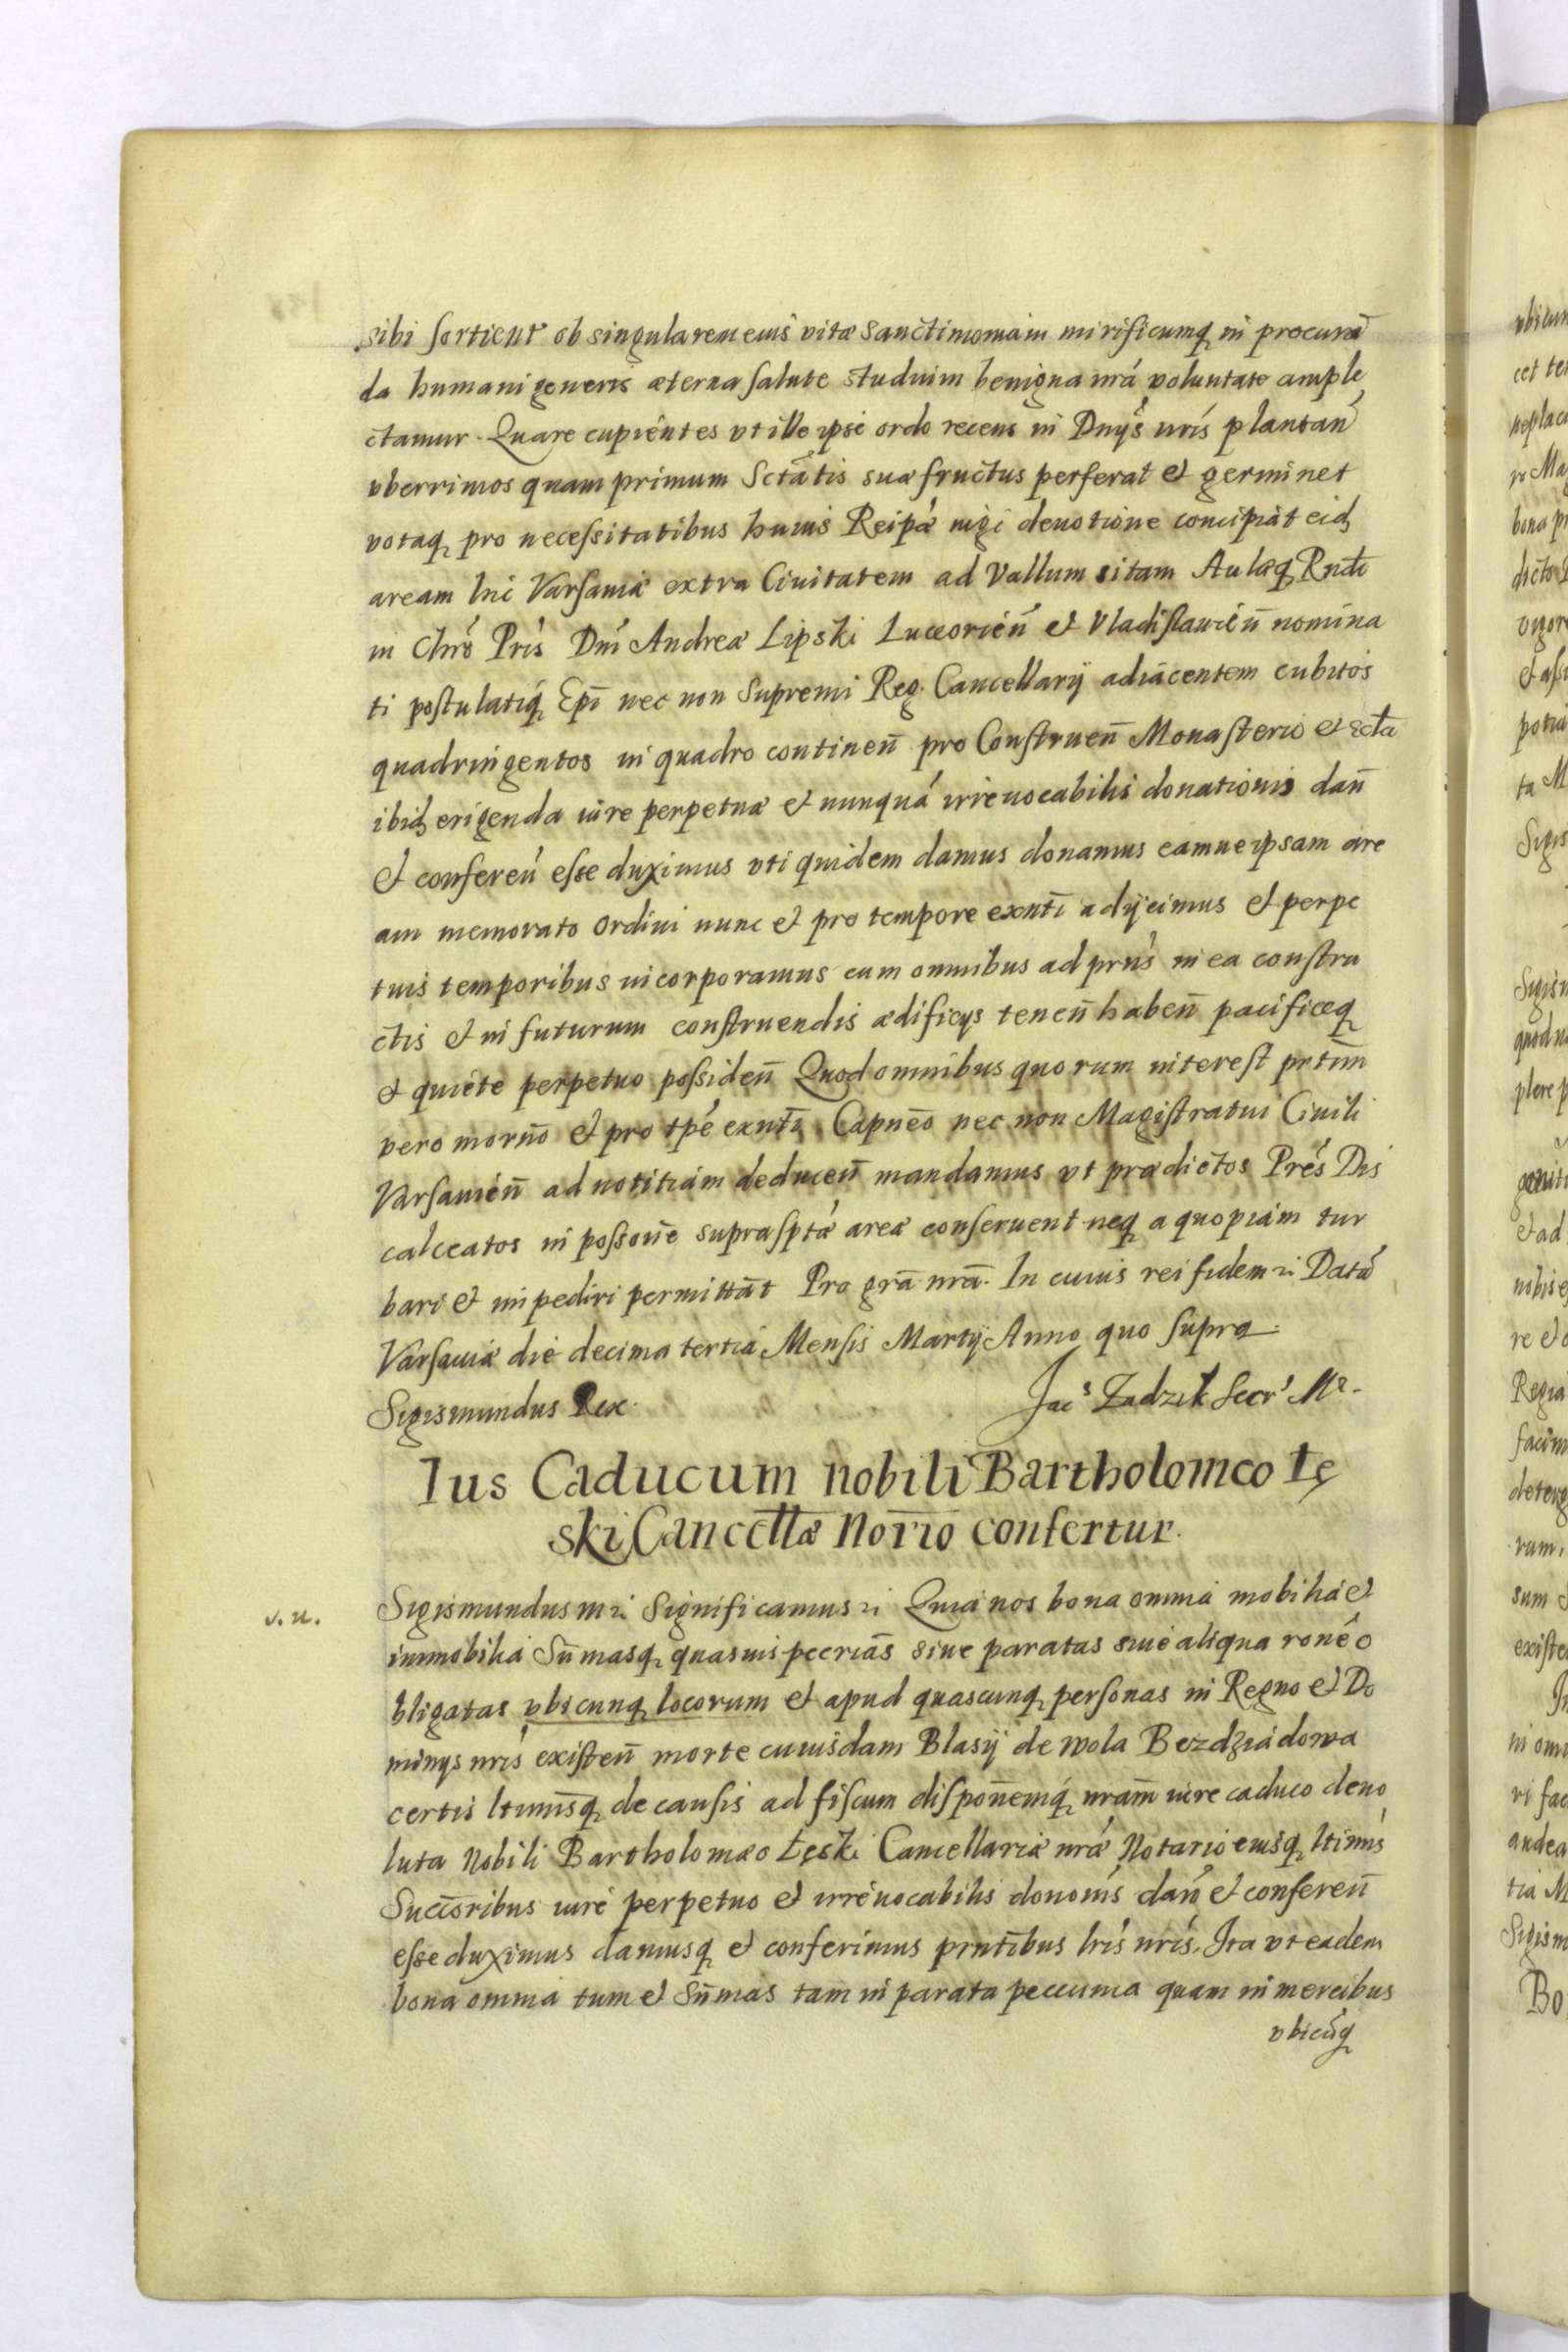 sibi sortieur ob singularem eius vitæ Sanctimoniam mirificumq in procurā
da humani generis æterna salute studium benigna nrá voluntate ample
ctamur. Quare cupientes vt ille ipse ordo recens in Dnÿs nrís plantan
vberrimos quam primum Sctātis suæ fructus perferat et germinet
votaq pro necessitatibus huius Reipæ iugi deuotione concipiat eid
aream hic Varsauiæ extra Ciuitatem ad Vallum sitam Aulæq Rndi
in Chro Pris Dni Andreæ Lipski Luceorien̄ et Vladislauien̄ nomina
ti postulatiq Epi nec non Supremi Reg. Cancellarÿ adiacentem cubitos
quadringentos in quadro continen̄ pro Construen̄ Monasterio et ecta
ibid erigenda iure perpetuæ et nunquá irreuocabilis donationis dan̄
et conferen̄ esse duximus vti quidem damus donamus eamue ipsam are
am memorato ordini nunc et pro tempore exnti adÿcimus et perpe
tuis temporibus incorporamus cum omnibus ad prns in ea constru
ctis et in futurum construendis ædificÿs tenen̄ haben̄ pacificeq
et quiete perpetuo possiden̄ Quod omnibus quorum interest prtim
vero morno et pro tpé exnti Capneo nec non Magistratui Ciuili
Varsauien̄ ad notitiam deducen̄ mandamus vt prædictos Prés Dis
calceatos in possone suprasptæ areæ conseruent neq a quopiam tur
bari et impediri permittāt Pro grā nrā. In cuius rei fidem Datæ
Varsauiæ die decima tertia Mensis Martÿ Anno quo supra.
Sigismundus Rex. Jacs Zadzik Secr Mr.
Ius Caducum nobili Bartholomeo Łę
ski Cancellæ Norio confertur.
v. u.
Sigismundus Significamus Quia nos bona omnia mobilia et
immobilia Sūmasq quasuis pecrias siue paratas siue aliqua roné o
bligatas vbicunq locorum et apud quascunq personas in Regno et Do
minÿs nris existen̄ morte cuiusdam Blasÿ de Wola Bezdziadowa
certis ltimisq de causis ad fiscum disponemq nram iure caduco deuo
luta Nobili Bartholomæo Łęski Cancellariæ nræ Notario eiusq ltimis
Succoribus iure perpetuo et irreuocabilis dononis dan̄ et conferen̄
esse duximus damusq et conferimus prntibus lris nris. Ita vt eadem
bona omnia tum et Sūmas tam in parata peccunia quam in mercibus
vbicūq